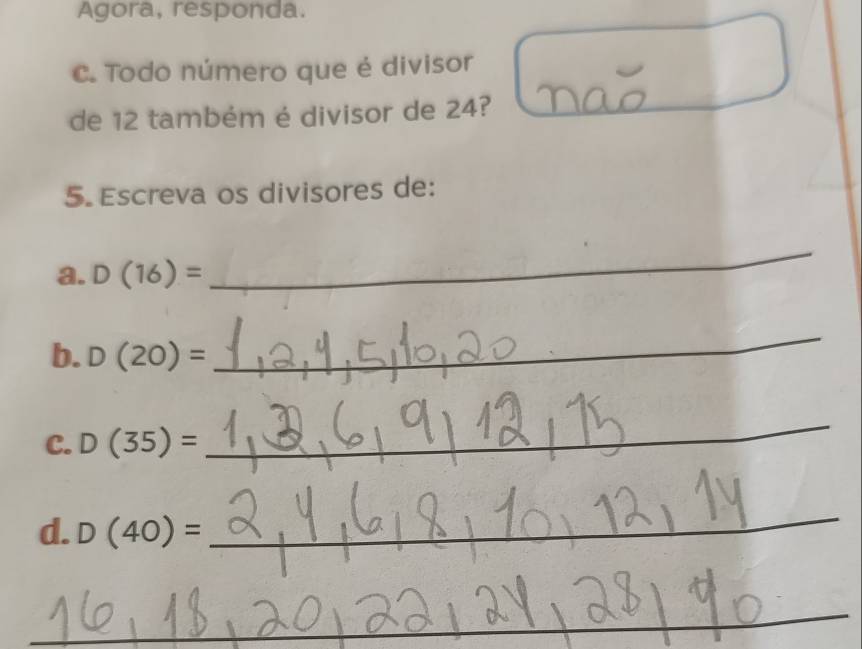 Agora, responda.
c. Todo número que é divisor
de 12 também é divisor de 24?
naõ
5. Escreva os divisores de:
a. D (16) =
b. D (20) = 1,2,4,5,10,20
c. D (35) = 1,3,6,9,12,15
d. D (40) = 2,4,6,8,10,12,14
16,18,20,22,24,28,40